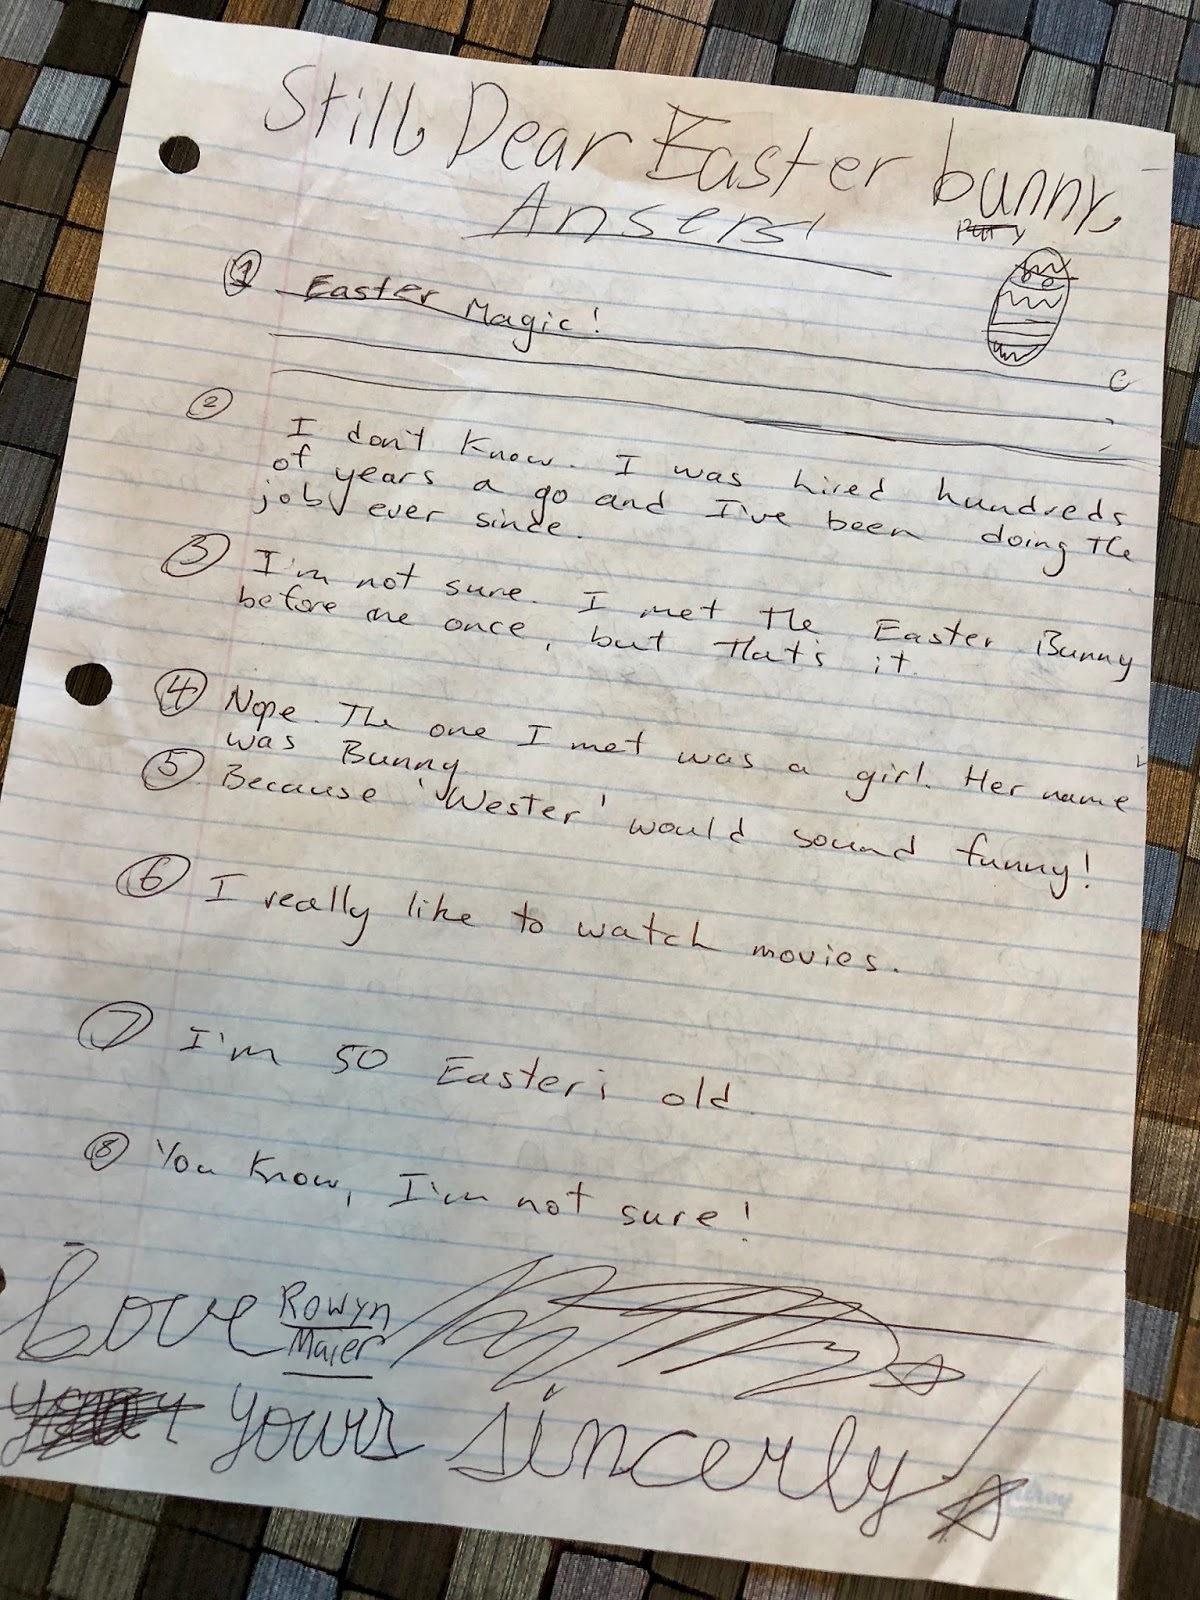 Still Dear Easter bunny,
Ansers!
① Easter Magic!
② I don't know. I was hired hundreds
of years a go and I've been doing the
job ever since.
③ I'm not sure. I met the Easter Bunny
before me once, but that's it.
④ Nope. The one I met was a girl. Her name
was Bunny
⑤ Because 'Wester' would sound funny!
⑥ I really like to watch movies.
⑦ I'm 50 Easteri old.
⑧ You know, I'm not sure!
Love Rowyn
Maier
yours sincerly!